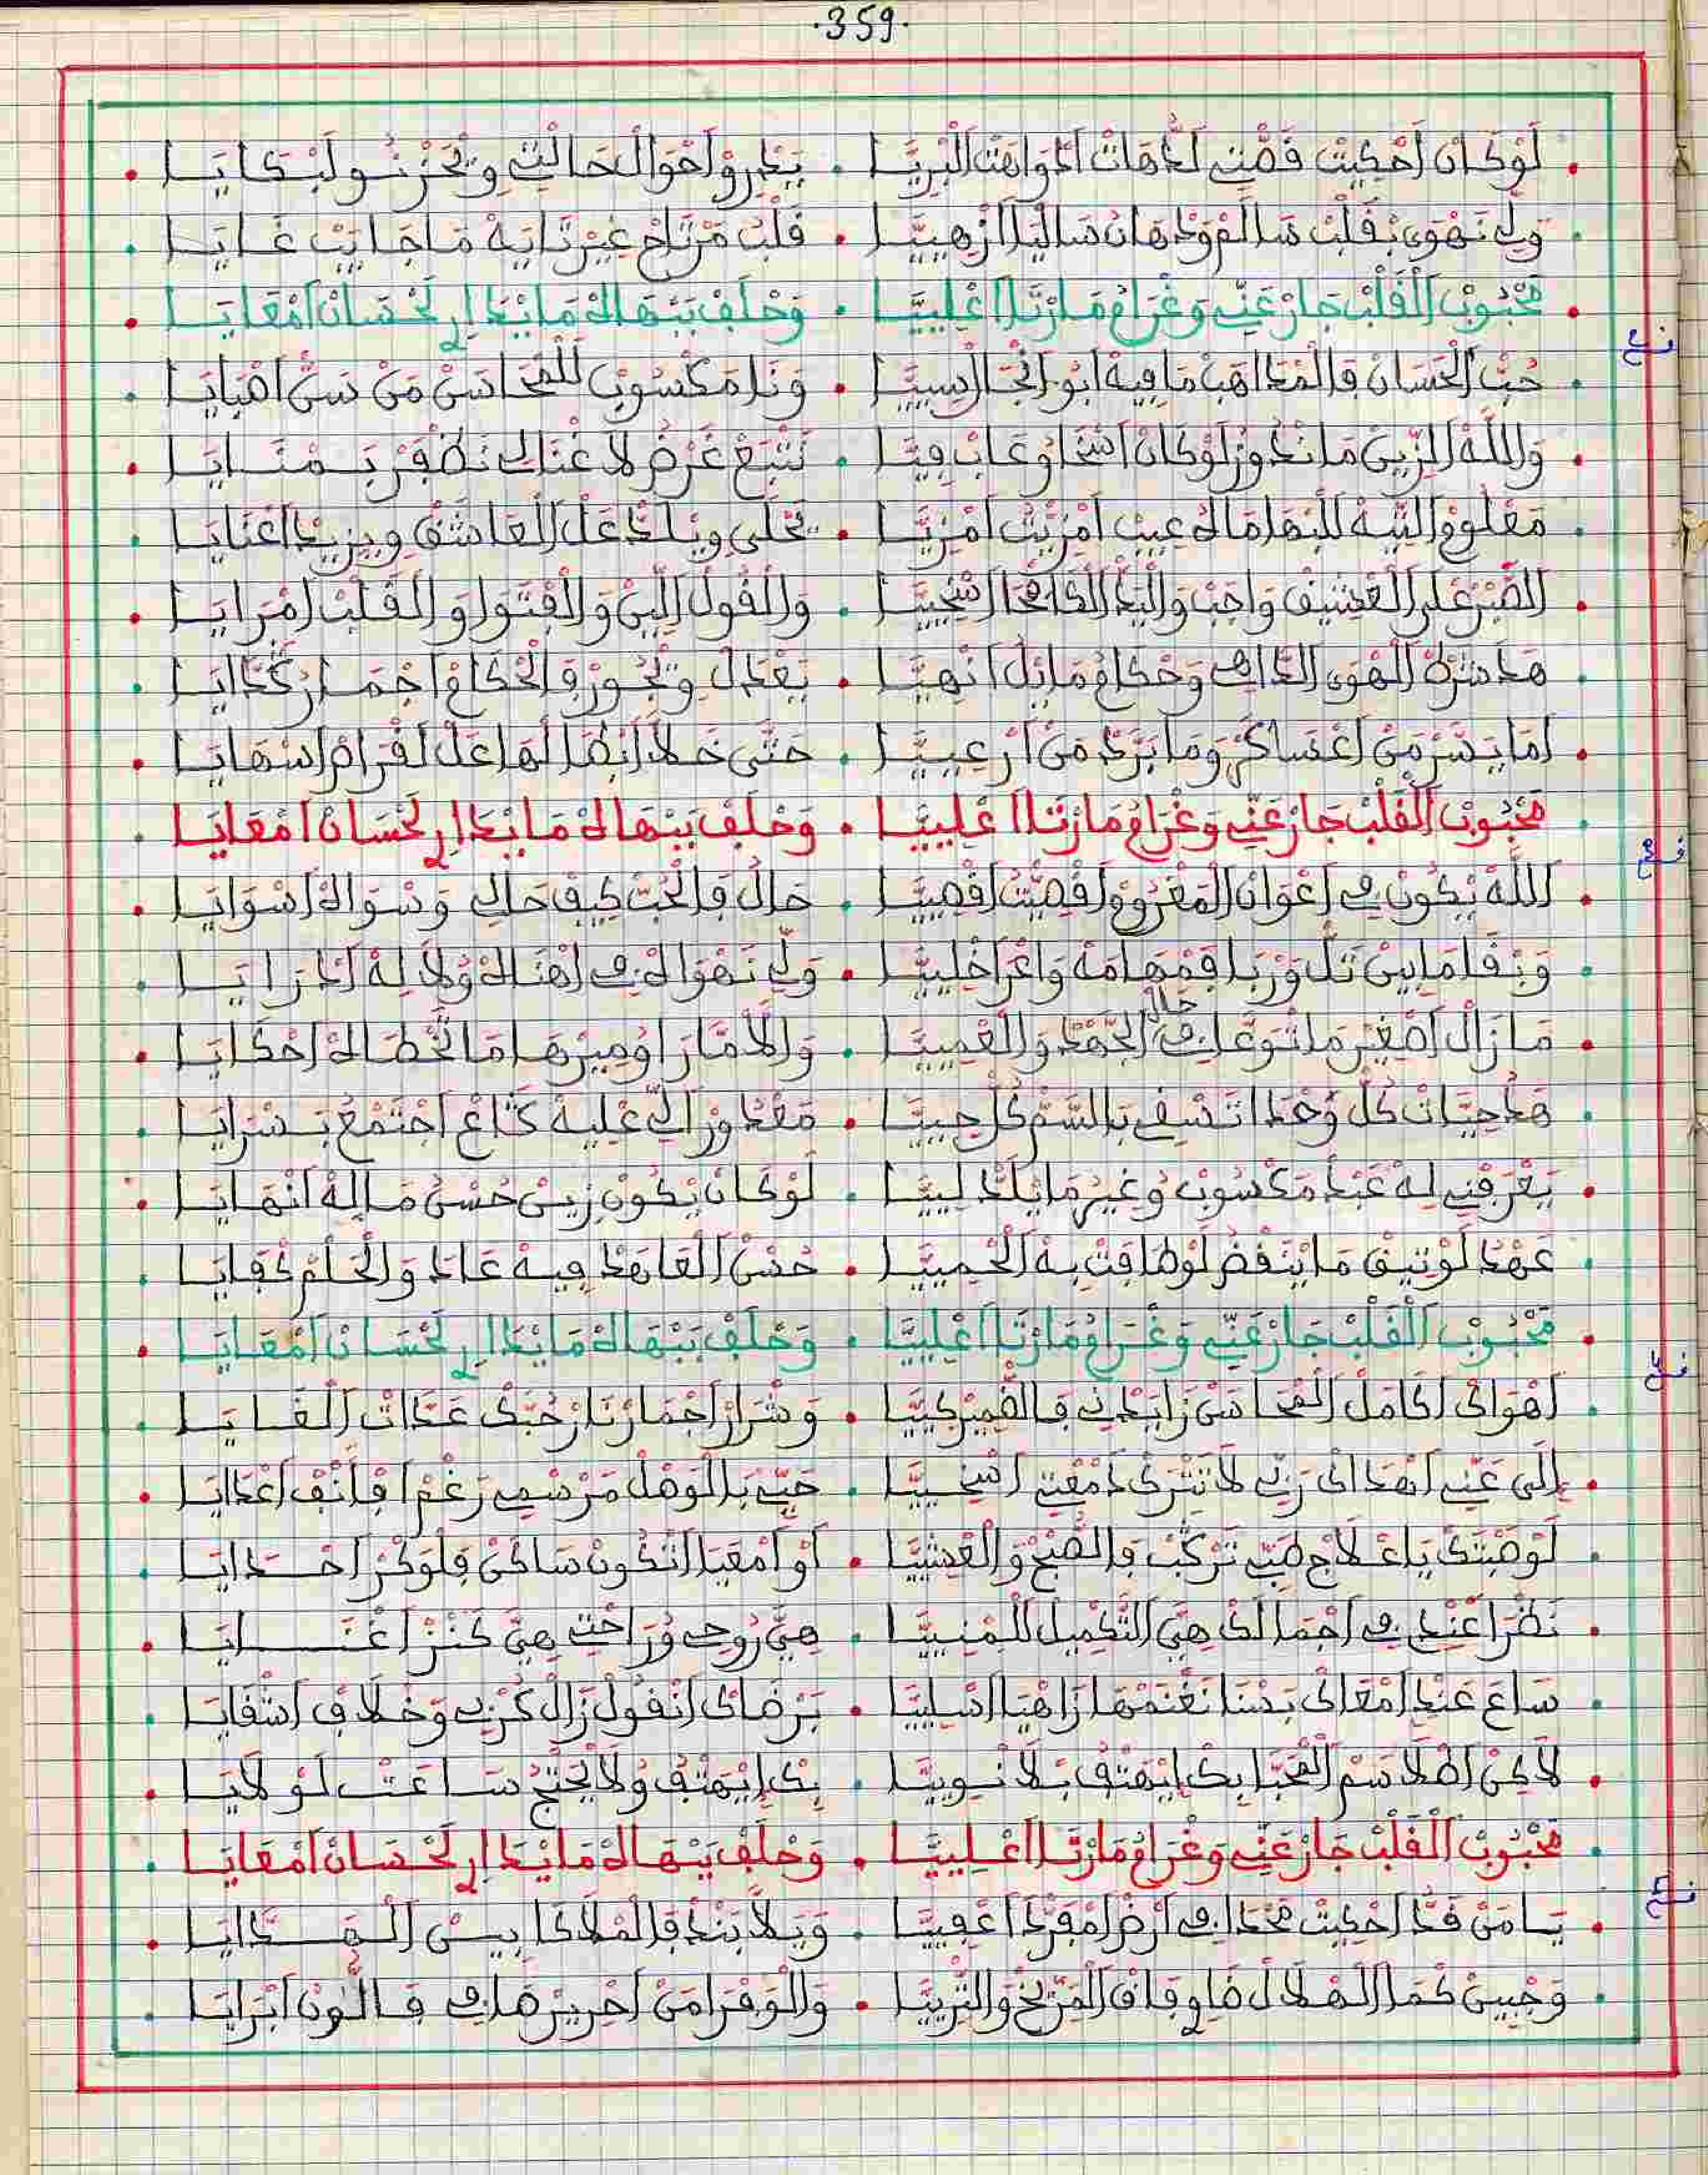 .359.
لَوْ كَانْ احْكِيتْ قَصّْتِي لَدْهَاتْ ادْوَاهَتْ الْبْرِيَّا . يَعْدْرُو احْوَالْ حَالْتِي وتْحَزْنُو لَبْكَايَا
وَلِّي نَهْوَى بْقَلْبْ سَالَمْ وَدْهَانْ سَالْيَا ازْهِيَّا . قَلْبُ مَرْتَاحْ غِيرْ تَايَهْ مَا جَايَبْ غَايَا
مَحْبُوبْ الْقَلْبْ جَارْ عَنِّي وَغْرَامُ مَا رْتَا اعْلِيَّا . وَحْلَفْ بَبْهَاهْ مَا يْدَارِي لَحْسَانْ امْعَايَا
حُبّْ الْحَسَانْ فَالْمْدَاهَبْ مَا فِيهْ ابُو انْجَالْ سِيَّا . وَنَا مَكْسُوبْ للمْحَاسَنْ مَنْ سَنّْ اصْبَايَا
وَاللَّهْ الزِّينْ مَا نْدُوزُ لَوْ كَانْ اسْخَا وْغَابْ فِيَّا . نَتْبَعْ غَرْضُ لَا غْنَا لِي نَضْفَرْ بَمْنَايَا
مَعْلُومْ التِّيهْ للبْهَا مَا هُ عِيبْ امْزِيّْتُ امْزِيَّا . يَحْلَى ويْلَدّْ عَلْ الْعَاشَقْ ويزِيدْ اعْنَايَا
الصّْبَرْ عْلَى الْعْشِيقْ وَاجَبْ وَالْيَدّْ الْكَامْحَا اسْخِيَّا . وَالْقُولْ اللِّينْ وَالْفْتُوَا وَالْقَلْبْ امْرَايَا
هَدَ شَرْعْ الْهْوَى الدَّاهِي وَحْكَامُ مَا بْلْ انْهِيَّا . يَعْدَلْ ويْجُورْ فَالْحْكَامْ اجْمَارُ كَدَّايَا
امَا يَسَّرْ مَنْ اعْسَاكَرْ وَمَا بَرَّدْ مَنْ ارْعِيَّا . حَتَّى خَلَّا ابْطَالْهَا عَلْ لَقْرَامْ اسْهَايَا
مَحْبُوبْ الْقَلْبْ جَارْ عَنِّي وَغْرَامُ مَا رْتَا اعْلِيَّا . وَحْلَفْ بَبْهَاهْ مَا يْدَارِي لَحْسَانْ امْعَايَا
اللَّهْ يْكُونْ فِي اعْوَانْ الْمَغْرُومْ اقْصِيّْتُ اقْصِيَّا . حَالُ فَالْحُبّْ كِيفْ حَالِي وَسْوَاهْ اسْوَايَا
وَبْقَا مَا بِينْ تَلّْ وَرْبَا فَمْهَامَهْ وَاعْرَا خْلِيَّا . وَلِّي نَهْوَاهْ فِي اهْنَاهْ وْلَا لِهْ ادْرَايَا
مَازَالْ اصْغِيرْ مَا تْوَعَّا فِي حَالْ الْجَهْدْ وَالْعْمِيَّا . وَالْامَّارَا وْمِيرْهَا مَا تَخْطَاهْ احْكَايَا
هَدْ حِيَّاتْ كُلّْ وَحْدَا تَسْفِي بَالسَّمّْ كُلّْ حِيَّا . مَعْدُورْ الِّي عْلِيهْ كَاعْ اجْتَمْعُ بَسْرَايَا
يَعْرَفْنِي لِهْ عَبْدْ مَكْسُوبْ وْغِيرُ مَا يْلَدّْ لِيَّا . لَوْ كَانْ يْكُونْ زِينْ حُسْنُ مَا لِهْ انْهَايَا
عَهْدُ لَوْتِيقْ مَا يَنْقَضْ لَوْ ضَاقَتْ بِهْ الْحْمِيَّا . حُسْنْ الْعَاهَدْ فِيهْ عَادَ وَالْحَلْمْ كْفَايَا
مَحْبُوبْ الْقَلْبْ جَارْ عَنِّي وَغْرَامُ مَا رْتَا اعْلِيَّا . وَحْلَفْ بَبْهَاهْ مَا يْدَارِي لَحْسَانْ امْعَايَا
اهْوَاكْ اكَامَلْ الْمْحَاسَنْ زَايَدْنِي فَالضّْمِيرْ كِيَّا . وَشْرَارْ اجْمَارْ نَارْ حُبَّكْ عَدَّاتْ الْغَايَا
إِلَى عَنِّي اهْدَاكْ رَبِّي لَا تَتْرَكْ دَمْعْتِي اسْخِيَّا . حَيِّي بَالْوَصْلْ مَرْسْمِي رَغْمْ افْأَنْفْ اعْدَايَا
لَوْ صَبْتَكْ يَا عْلَاجْ طَبِّي نَرْكَبْ فَالصّْبْحْ وَالْعْشِيَّا . أَوْ امْعَيَا اتْكُونْ سَاكَنْ فَلْوَكْرْ احْدَايَا
نَضْرَا عَنْدِي فِي اجْمَالَكْ هِيَّ التَّكْمِيلْ للمْنِيَّا . هِيَّ رُوحِي وْرَاحْتِي هِيَّ كَنْزْ اغْنَايَا
سَاعَ عَنْدِي امْعَاكْ بَسْنَا نَغْنَمْهَا زَاهْيَا اسْلِيَّا . بَرْضَاكْ انْقُولْ زَالْ كَرْبِي وَخْلَاقِي اشْفَايَا
لَاكِنْ اطْلَاسَمْ الْمْحَبَّا بِكْ ايْهَتْفُ بْلَا نْوِيَّا . بِكْ ايْهَتْفُ وْلَا يْحَتْجُ سَاعَتْ لَوْلَايَا
مَحْبُوبْ الْقَلْبْ جَارْ عَنِّي وَغْرَامُ مَا رْتَا اعْلِيَّا . وَحْلَفْ بَبْهَاهْ مَا يْدَارِي لَحْسَانْ امْعَايَا
يَا مَنْ قَدّْ احْكِيتْ مَحْدَا فِي ارْضْ امْفَرْدَا اعْفِيَّا . وَيلَا بَنْدْ فَالْمْلَاكَا بِينْ الْهَدَّايَا
وَجْبِينْ كْمَا الْهْلَالْ ضَاوِي فَاقْ الْمَرِّيخْ وَالتّْرِيَّا . وَالْوَفْرَا مَنْ احْرِيرْ صَافِي فَاللُّونْ ابْرَايَا